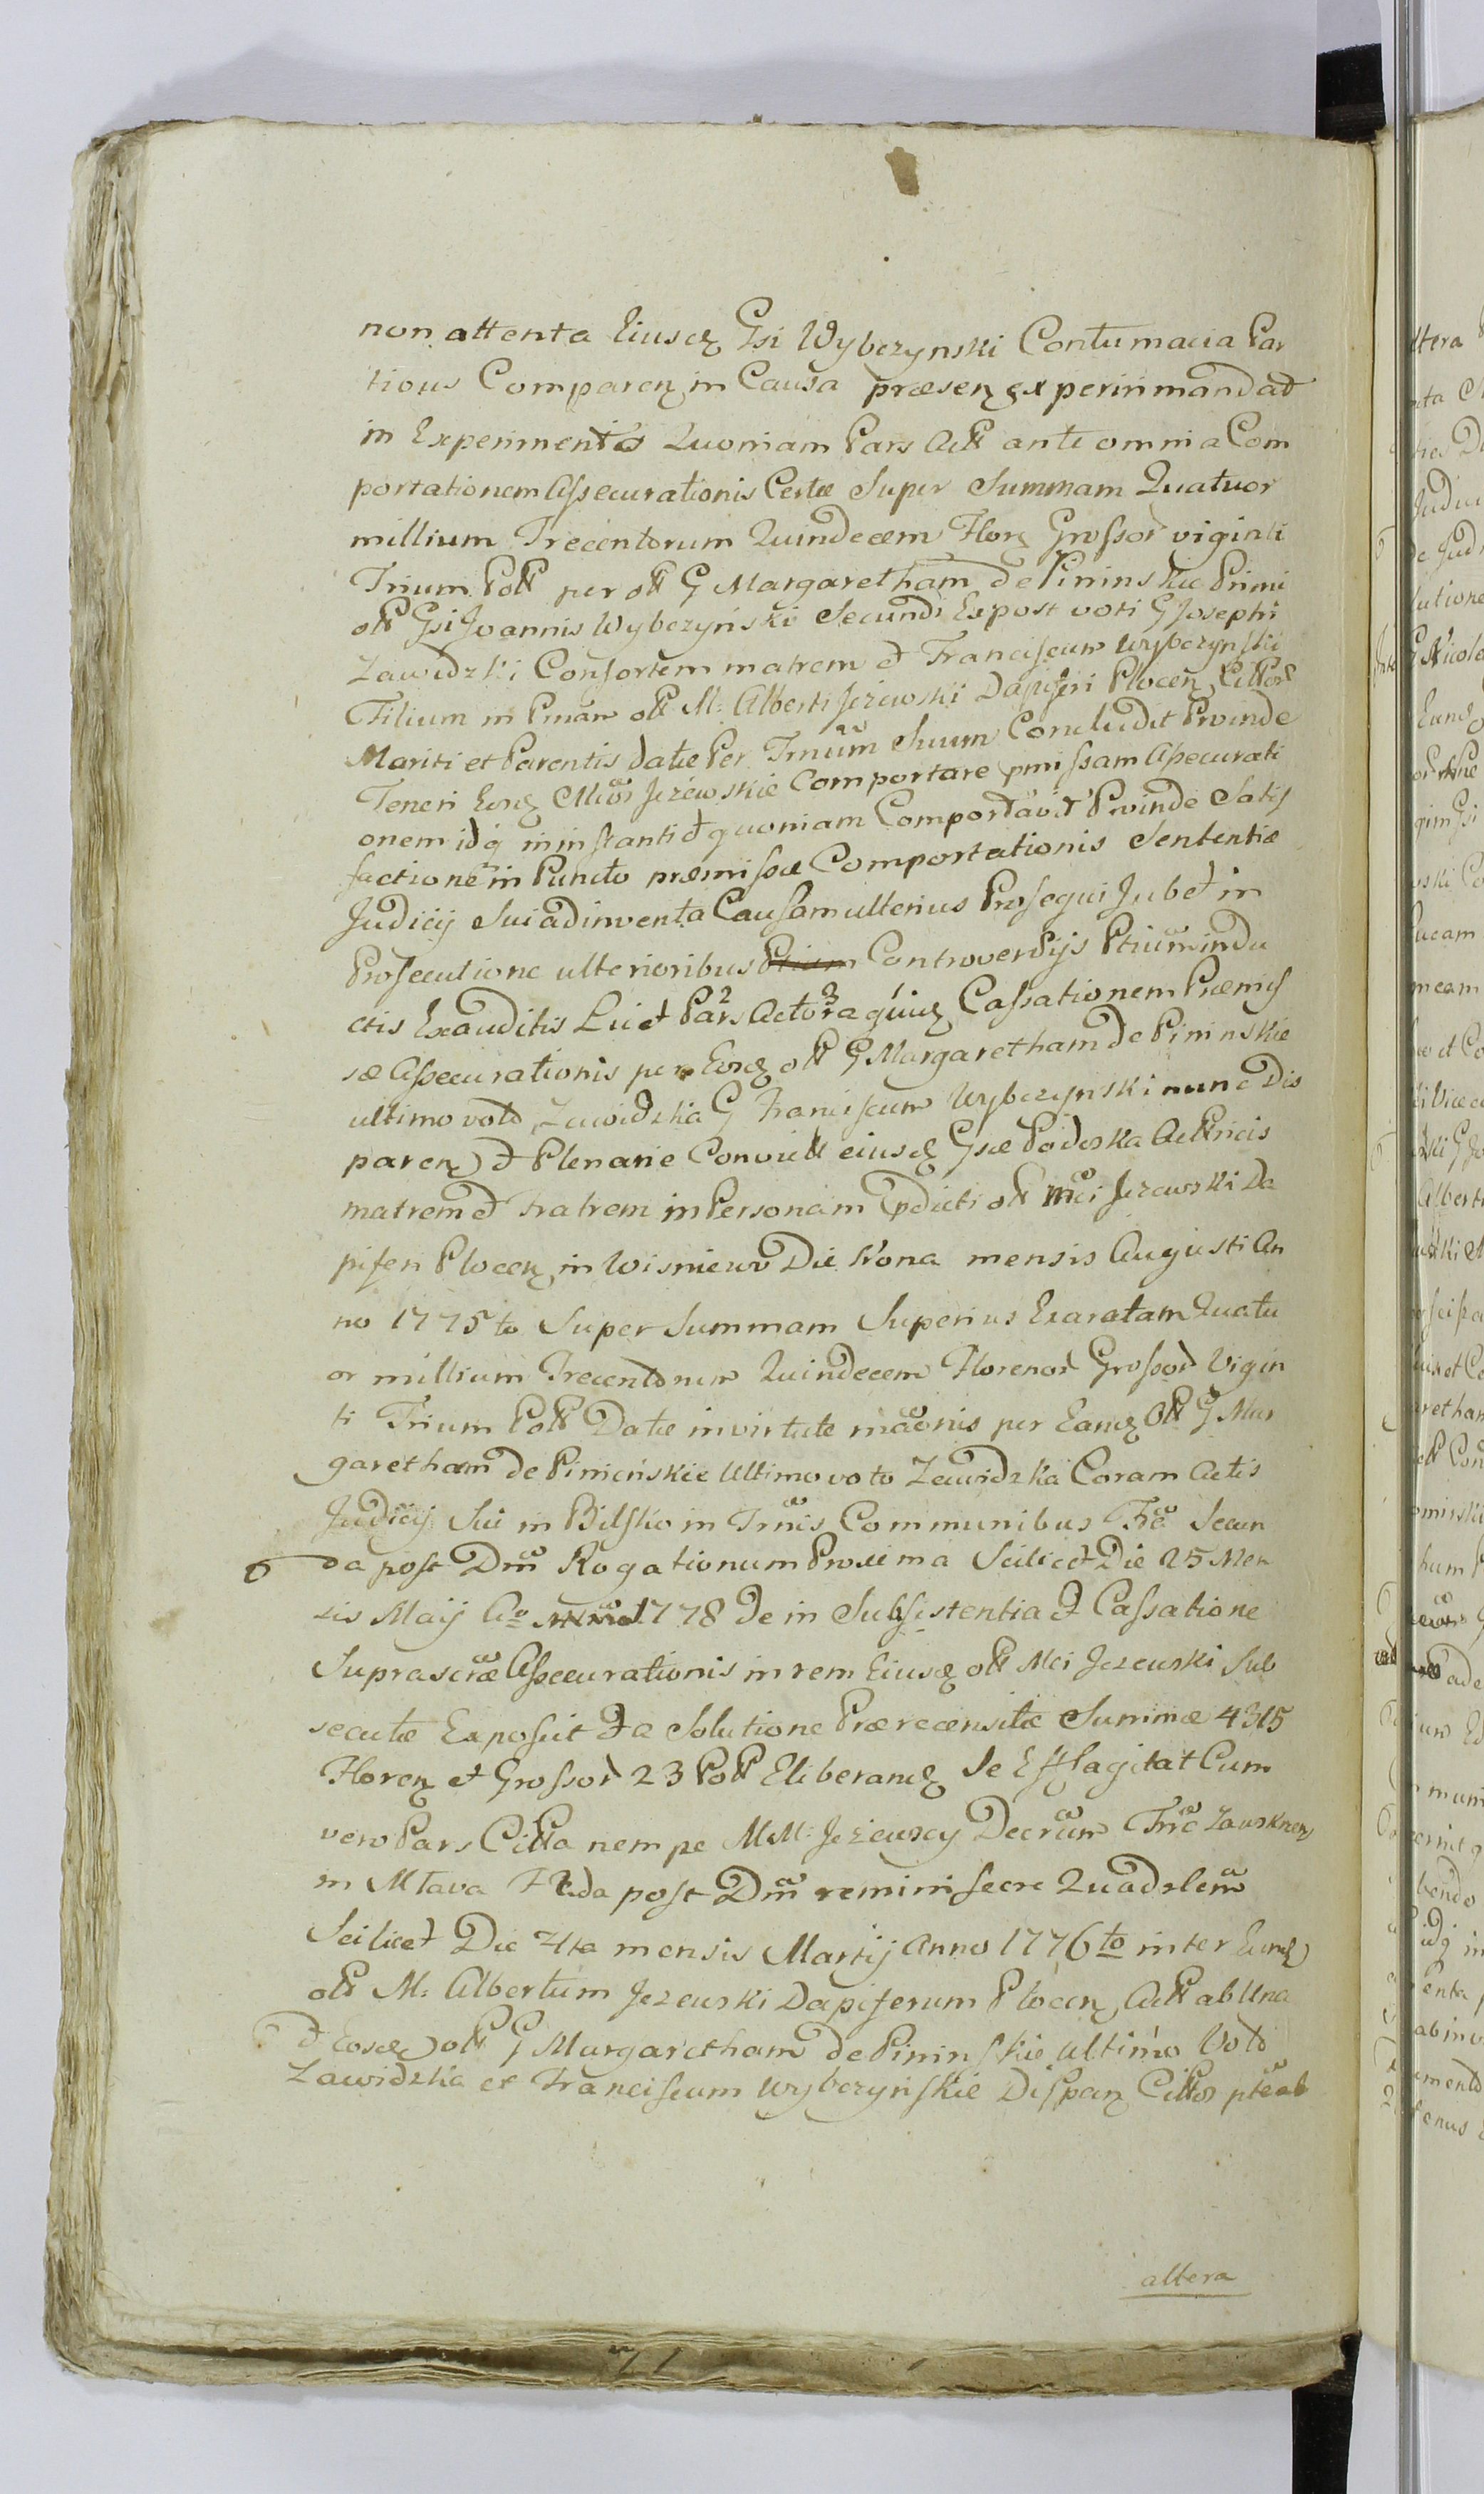 non attenta Eiusdꝫ Gsi Wybczynski Contumacia Par
tibus Comparenꝫ in Causa præsenꝫ experiri mandat
in Experimentis Quoniam Pars Actt ante omnia Com
portationem Assecurationis Certæ Super Summam Quatuor
millium Trecentorum Quindecem Florꝫ Grossor viginti
Trium Poll per oll G Margaretham de Pininskie Primi
oll Gsi Joannis Wybczyński Secundi Expost voti G Josephi
Zawidzki Consortem matrem et Franciscum Wybczynski
Filium in Pnam oll M: Alberti Jeżewski Dapiferi Plocenꝫ Cittor
Mariti et Parentis datæ Per Trnum Suum Concludit Proinde
Teneri Eosdꝫ Mcos Jeżewskie Comportare pmissam Assecurati
onem idq in instanti et quoniam Comportavit Proinde Satis
factione in Puncto præmissæ Comportationis Sententiæ
Judicij Sui adinventa Causam ulterius Prosequi Jubet in
Prosecutione ulterioribus Ptium Controversijs Ptium indu
ctis Exauditis Licet Pars 2 Actora 3 quidꝫ 1 Cassationem Præmis
sæ Assecurationis per Eosdꝫ oll G Margaretham de Pininskie
ultimo voto Zawidzka G Franciscum Wybczynski nunc Dis
parenꝫ et Plenarie Convictt eiusdꝫ Gsæ Podoska Acttricis
matrem et Fratrem in Personam pdicti oll Mci Jezewski Da
piferi Plocenꝫ in Wisniewo Die Nona mensis Augusti An
no 1775to Super Summam Superius Exaratam Quatu
or millium Trecentorum Quindecem Florenor Grossor Vigin
ti Trium Poll Datæ in virtute maonis per Eandꝫ Oll G Mar
garetham de Pinińskie Ultimo voto Zawidzka Coram Actis
Judicij Sui in Bilsko in Trnis Communibus Fra Secun
da post Dm Rogationum Proxima Scilicet Die 25 Men
sis Maij Ao 1778 de in Subsistentia et Cassatione
Suprascræ Assecurationis in rem Eiusdꝫ oll Mci Jezewski Sub
secutæ Exposuit et a Solutione Prærecensitæ Summæ 4315
Florenꝫ et Grossor 23 Poll Eliberandꝫ Se Efflagitat Cum
vero Pars Citta nempe MM: Jeżewscy Decrum Trre Zawsknenꝫ
in Mława F 2da post Dm reminiscere Quadrlem
Scilicet Die 4ta mensis Martij Anno 1776to inter Eundꝫ
oll M: Albertum Jezewski Dapiferum Plocenꝫ Actt ab Una
et Eosdꝫ oll G Margaretham de Pininskie Ultimo Voto
Zawidzka et Franciscum Wybczyńskie Disparꝫ Cittos pte ab
altera